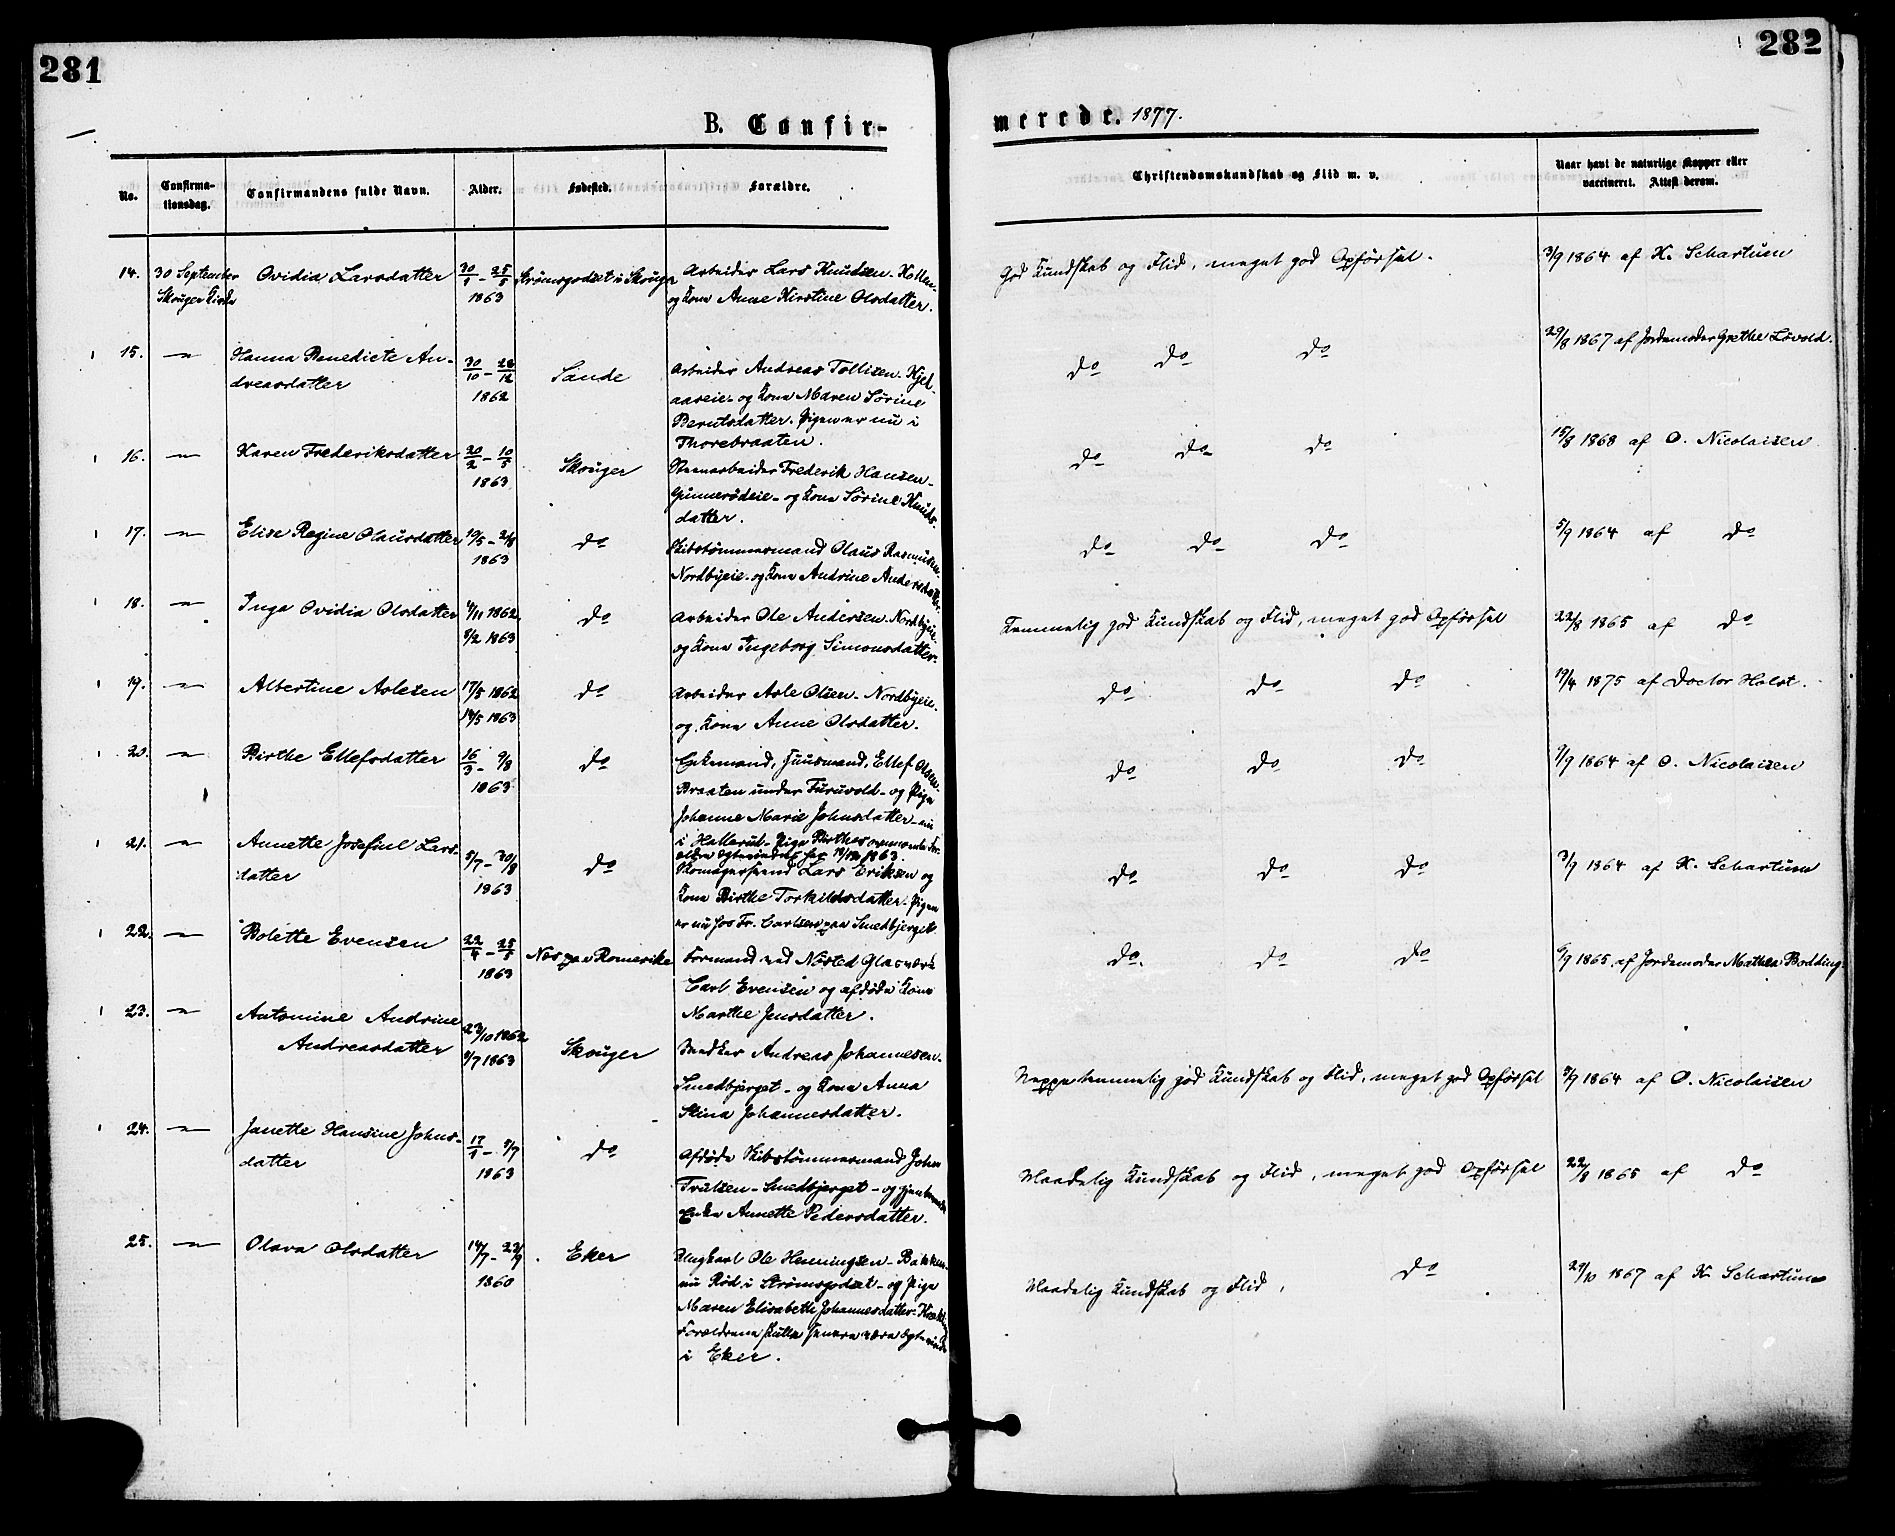 281
282
B. Confir-
merede. 1877.
No.
Confirma-
tionsdag.
Confirmandens fulde Navn.
Alder.
Fødested.
Forældre.
Christendomskundskab og Flid m. v.
Naar havt de naturlige Kopper eller
vaccineret. Attest derom.
14. 30 September Ovidia Larsdatter 30/1 - 25/5 Strømsgodset i Skouger Arbeider Lars Knudsen - Kollen - God Kundskab og Flid, meget god Opførsel. 3/9 1864 af K. Schartum
Skouger Kirke 1863 og Kone Anne Kirstine Olsdatter.
15. — Hanna Benedicte An- 30/10 - 28/12 Sande Arbeider Andreas Tollisen - Kjel- do do do 29/8 1867 af Jordemoder Grethe Løvold.
dreasdatter 1862 aaseie - og Kone Maren Sørine
Berntsdatter. Pigen er nu i
Thorebraaten.
16. — Karen Frederiksdatter 20/2 - 10/5 Skouger Steenarbeider Frederik Hansen - do do do 15/8 1868 af O. Nicolaisen
1863 Gunnerødeie - og Kone Sørine Knuds-
datter.
17. — Elise Regine Olausdatter 19/5 - 2/8 do Skibstømmermand Olaus Rasmussen - do do do 5/9 1864 af do
1863 Nordbyeie - og Kone Andrine Andersdatter.
18. — Inga Ovidia Olsdatter 4/11 1862 do Arbeider Ole Andersen - Nordbyeie - Temmelig god Kundskab og Flid, meget god Opførsel 22/8 1865 af do
8/2 1863 og Kone Ingeborg Simonsdatter.
19. — Albertine Aslesen 17/5 1862 do Arbeider Asle Olsen - Nordbyeie - do do do 19/4 1875 af Doctor Holst.
14/5 1863 og Kone Anne Olsdatter.
20. — Birthe Ellefsdatter 16/3 - 9/8 do Enkemand, Huusmand, Ellef Olsen - do do do 7/9 1864 af O. Nicolaisen
1863 Braaten under Furuvold - og Pige
Johanne Marie Johnsdatter - nu
i Hallerud - Pige Birthes For-
ældre ægteviedes her 1863.
21. — Annette Josefine Lars- 5/7 - 30/8 do Skomagersvend Lars Eriksen og do do do 3/9 1864 af K. Schartum
datter 1863 Kone Birthe Torkildsdatter - Pigen
er nu hos Fr. Carlsen paa Smedbjerget.
22. — Bolette Evensen 22/4 - 25/5 Næs paa Romerike Formand ved Næsted Glasværk do do do 6/9 1865 af Jordemoder Mathea Bødding.
1863 Carl Evensen og afdøde Kone
Marthe Jensdatter.
23. — Antomine Andrine 23/10 1862
Andreasdatter 8/7 1863 Skouger Snedker Andreas Johannesen - Neppe temmelig god Kundskab og Flid, meget god Opførsel 8/9 1864 af O. Nicolaisen
Smedbjerget - og Kone Anna
Stina Johannesdatter.
24. — Janette Hansine Johns- 17/1 - 5/7 do Afdøde Skibstømmermand John Maadelig Kundskab og Flid, meget god Opførsel 22/8 1865 af do
datter 1863 Trulsen - Smedbjerget - og gjenlevende
Enke Annette Pedersdatter.
25. — Olava Olsdatter 14/7 - 23/9 Eker Ungkarl Ole Henningsen - Bakken - Maadelig Kundskab og Flid, do 29/10 1867 af K. Schartum
1860 nu Rød i Strømsgodset - og Pige
Maren Elisabeth Johannesdatter -
Forældrene skulle senere være ægteviede
i Eker.